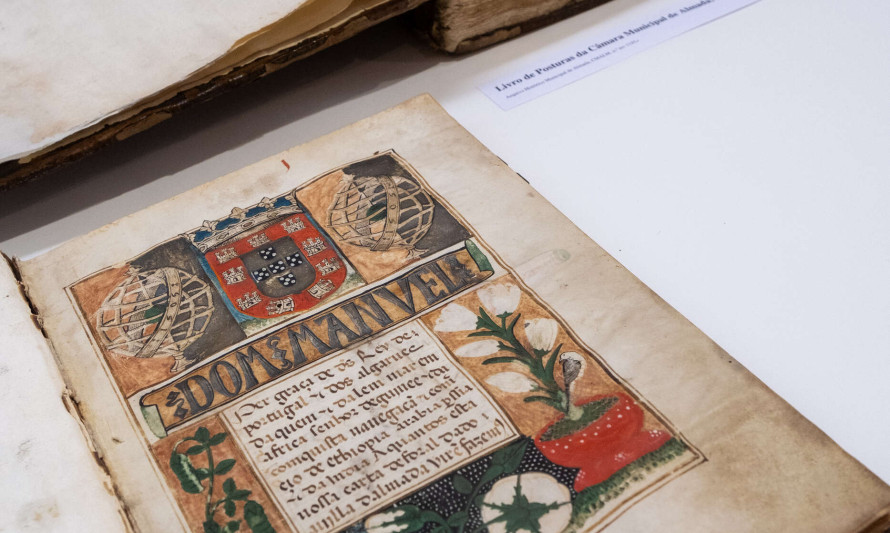 Livro de Posturas da Câmara Municipal de Almada.
DOM MANVEL
Per graça de ds Rey de
portugal ⁊ dos algarues
da quem ⁊ dalem mar em
africa senhor de guinee ⁊ da
conquista nauegaçã ⁊ comr
cio de ethiopia arabia ꝑssia
⁊ da India A quantos esta
nossa carta de foral dado
aa villa dalmada virẽ fazemꝯ